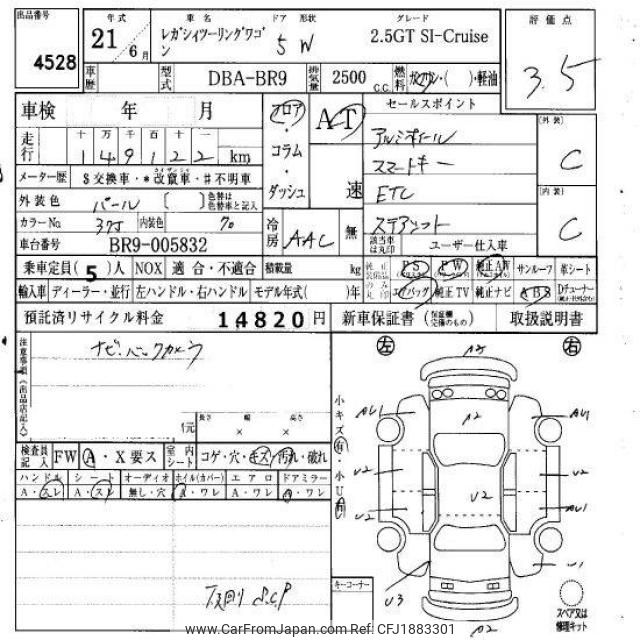 出品番号 年式 車名 ドア 形状 グレード 評価点
4528 21年 6月 レガシィツーリングワゴン 5 W 2.5GT SI-Cruise 3.5
車歴 型式 DBA-BR9 排気量 2500 C.C. 燃料 ガソリン・( )・軽油
車検 年 月 フロア・コラム・ダッシュ AT 速 セールスポイント (外装) C
走行 十 万 千 百 十 一
1 4 9 1 2 2 km アルミホイール
メーター歴 $交換車・*改竄車・#不明車 スマートキー
外装色 パール ( ) 色替は色替車と記入 ETC (内装) C
カラーNo. 37J 内装色 70 冷房 AAC 無 該当車は丸印 ユーザー仕入車
車台番号 BR9-005832
乗車定員( 5 )人 NOX 適合・不適合 積載量 kg 純正装備品のみ丸印 PS PW 純正AW サンルーフ 革シート
輸入車 ディーラー・並行 左ハンドル・右ハンドル モデル年式( )年 エアバッグ 純正TV 純正ナビ ABS Dチューナー
預託済リサイクル料金 14820円 新車保証書 (保証欄交換のもの) 取扱説明書
注意事項(出品店記入) ナビ・バックカメラ
長さ 幅 高さ
× ×
検査員記入 FW A・X要ス 室内シート コゲ・穴・キズ・汚れ・破れ
ハンドル シート オーディオ ホイル(カバー) エアロ ドアミラー
A・スレ A・スレ 無し・穴 A・ワレ A・ワレ A・ワレ
下廻り S.C.P
小キズ有 小U有
左 右
A2
AU1 A2 AU1
U2 U2
U2 U2 AU1
U3 U1
A2
キーコーナー
スペア又は修理キット
www.CarFromJapan.com Ref: CFJ1883301